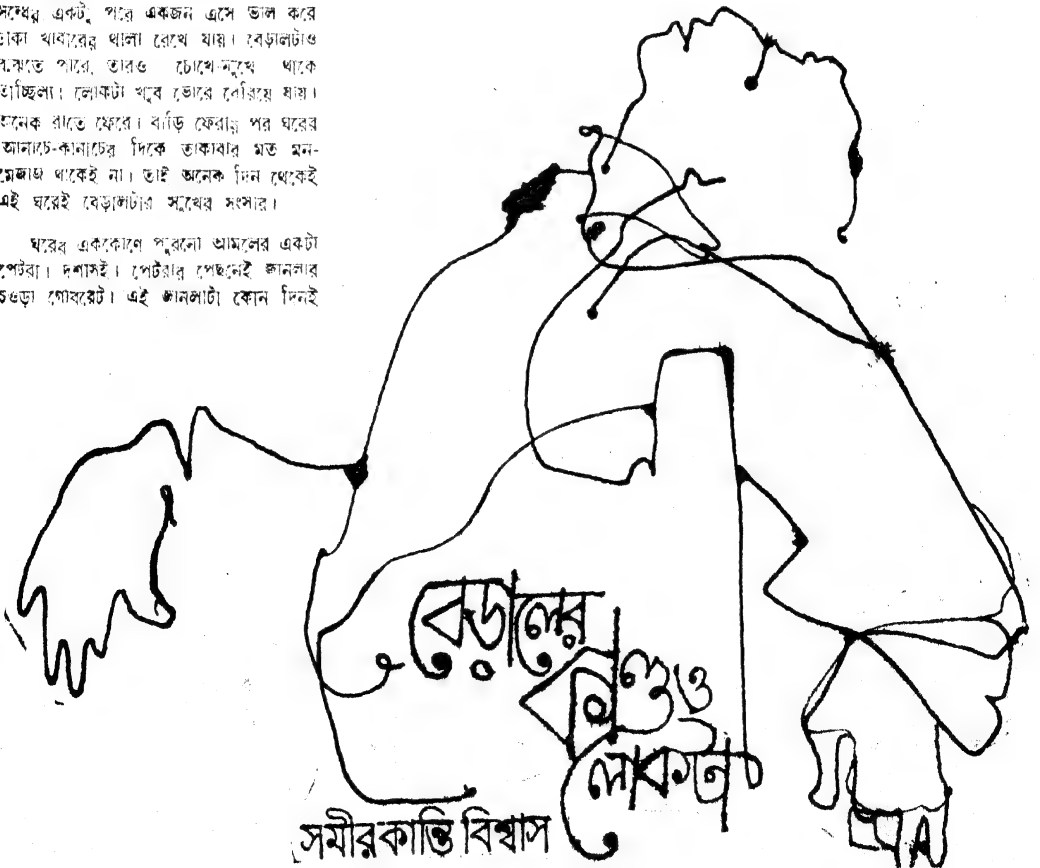 সন্ধ্যের একটু পরে একজন এসে ভাল করে
ঢাকা খাবারের থালা রেখে যায়। বেড়ালটাও
বুঝতে পারে, তারও চোখে-মুখে থাকে
তাচ্ছিল্য। লোকটা খুব ভোরে বেরিয়ে যায়।
অনেক রাতে ফেরে। বাড়ি ফেরার পর ঘরের
আনাচে-কানাচের দিকে তাকাবার মত মন-
মেজাজ থাকেই না। তাই অনেক দিন থেকেই
এই ঘরেই বেড়ালটার সুখের সংসার।
ঘরের এককোণে পুরনো আমলের একটা
পেটরা। দশাসই। পেটরার পেছনেই জানলার
চওড়া গোবরেট। এই জানলাটা কোন দিনই
বেড়ালের
কাণ্ড ও
লোকটা
সমীরকান্তি বিশ্বাস